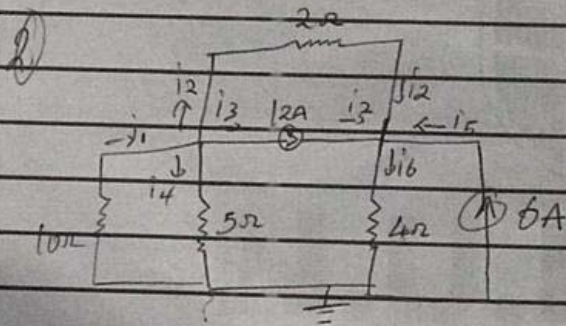 2Ω
2
i2 i2
i3 12A i3 i5
i1
i4 i6
10Ω 5Ω 4Ω 6A